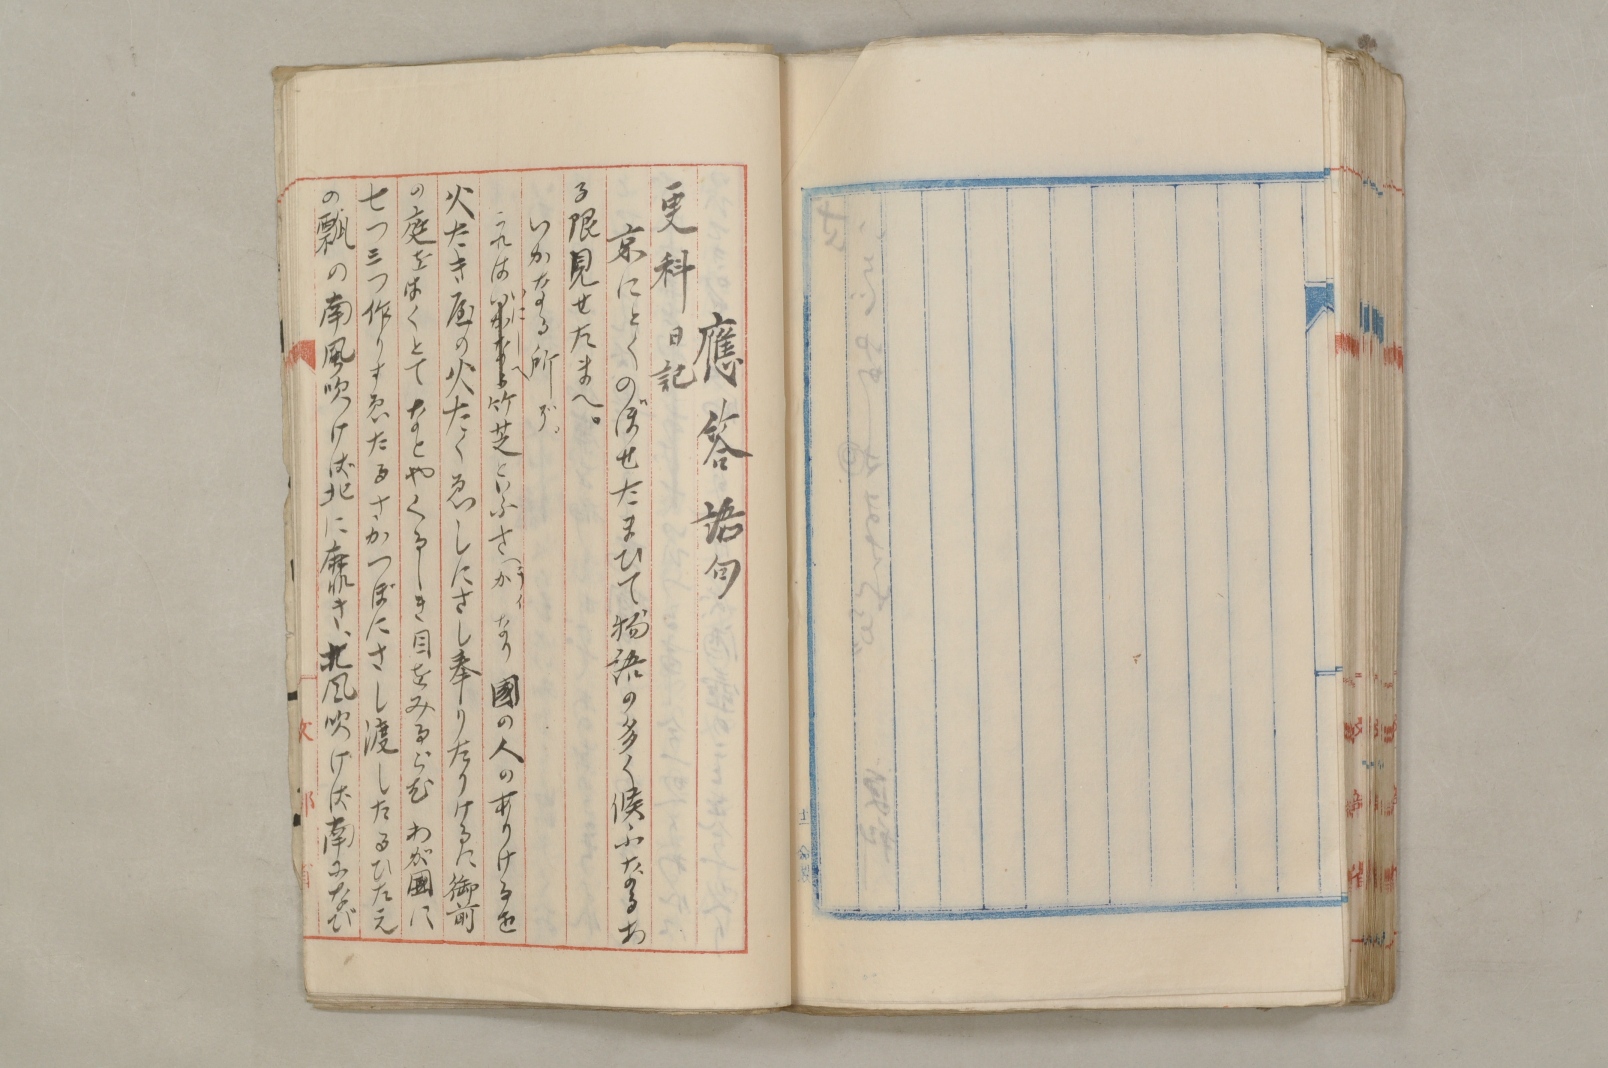 應答語句
更科日記
京にとくのぼせたまひて物語の多く候ふなるあ
る限見せたまへ。
いかなる所ぞ。
これはいにしへ竹芝といふさかなり國の人のありけるを
火たき屋の火たくゑしにさし奉りたりけるに御前
の庭をはくとてなとやくるしき目をみるらむわが國に
七つ三つ作りすゑたるさかつぼにさし渡したるひたえ
の瓢の南風吹けば北に靡き、北風吹けば南になび
文部省